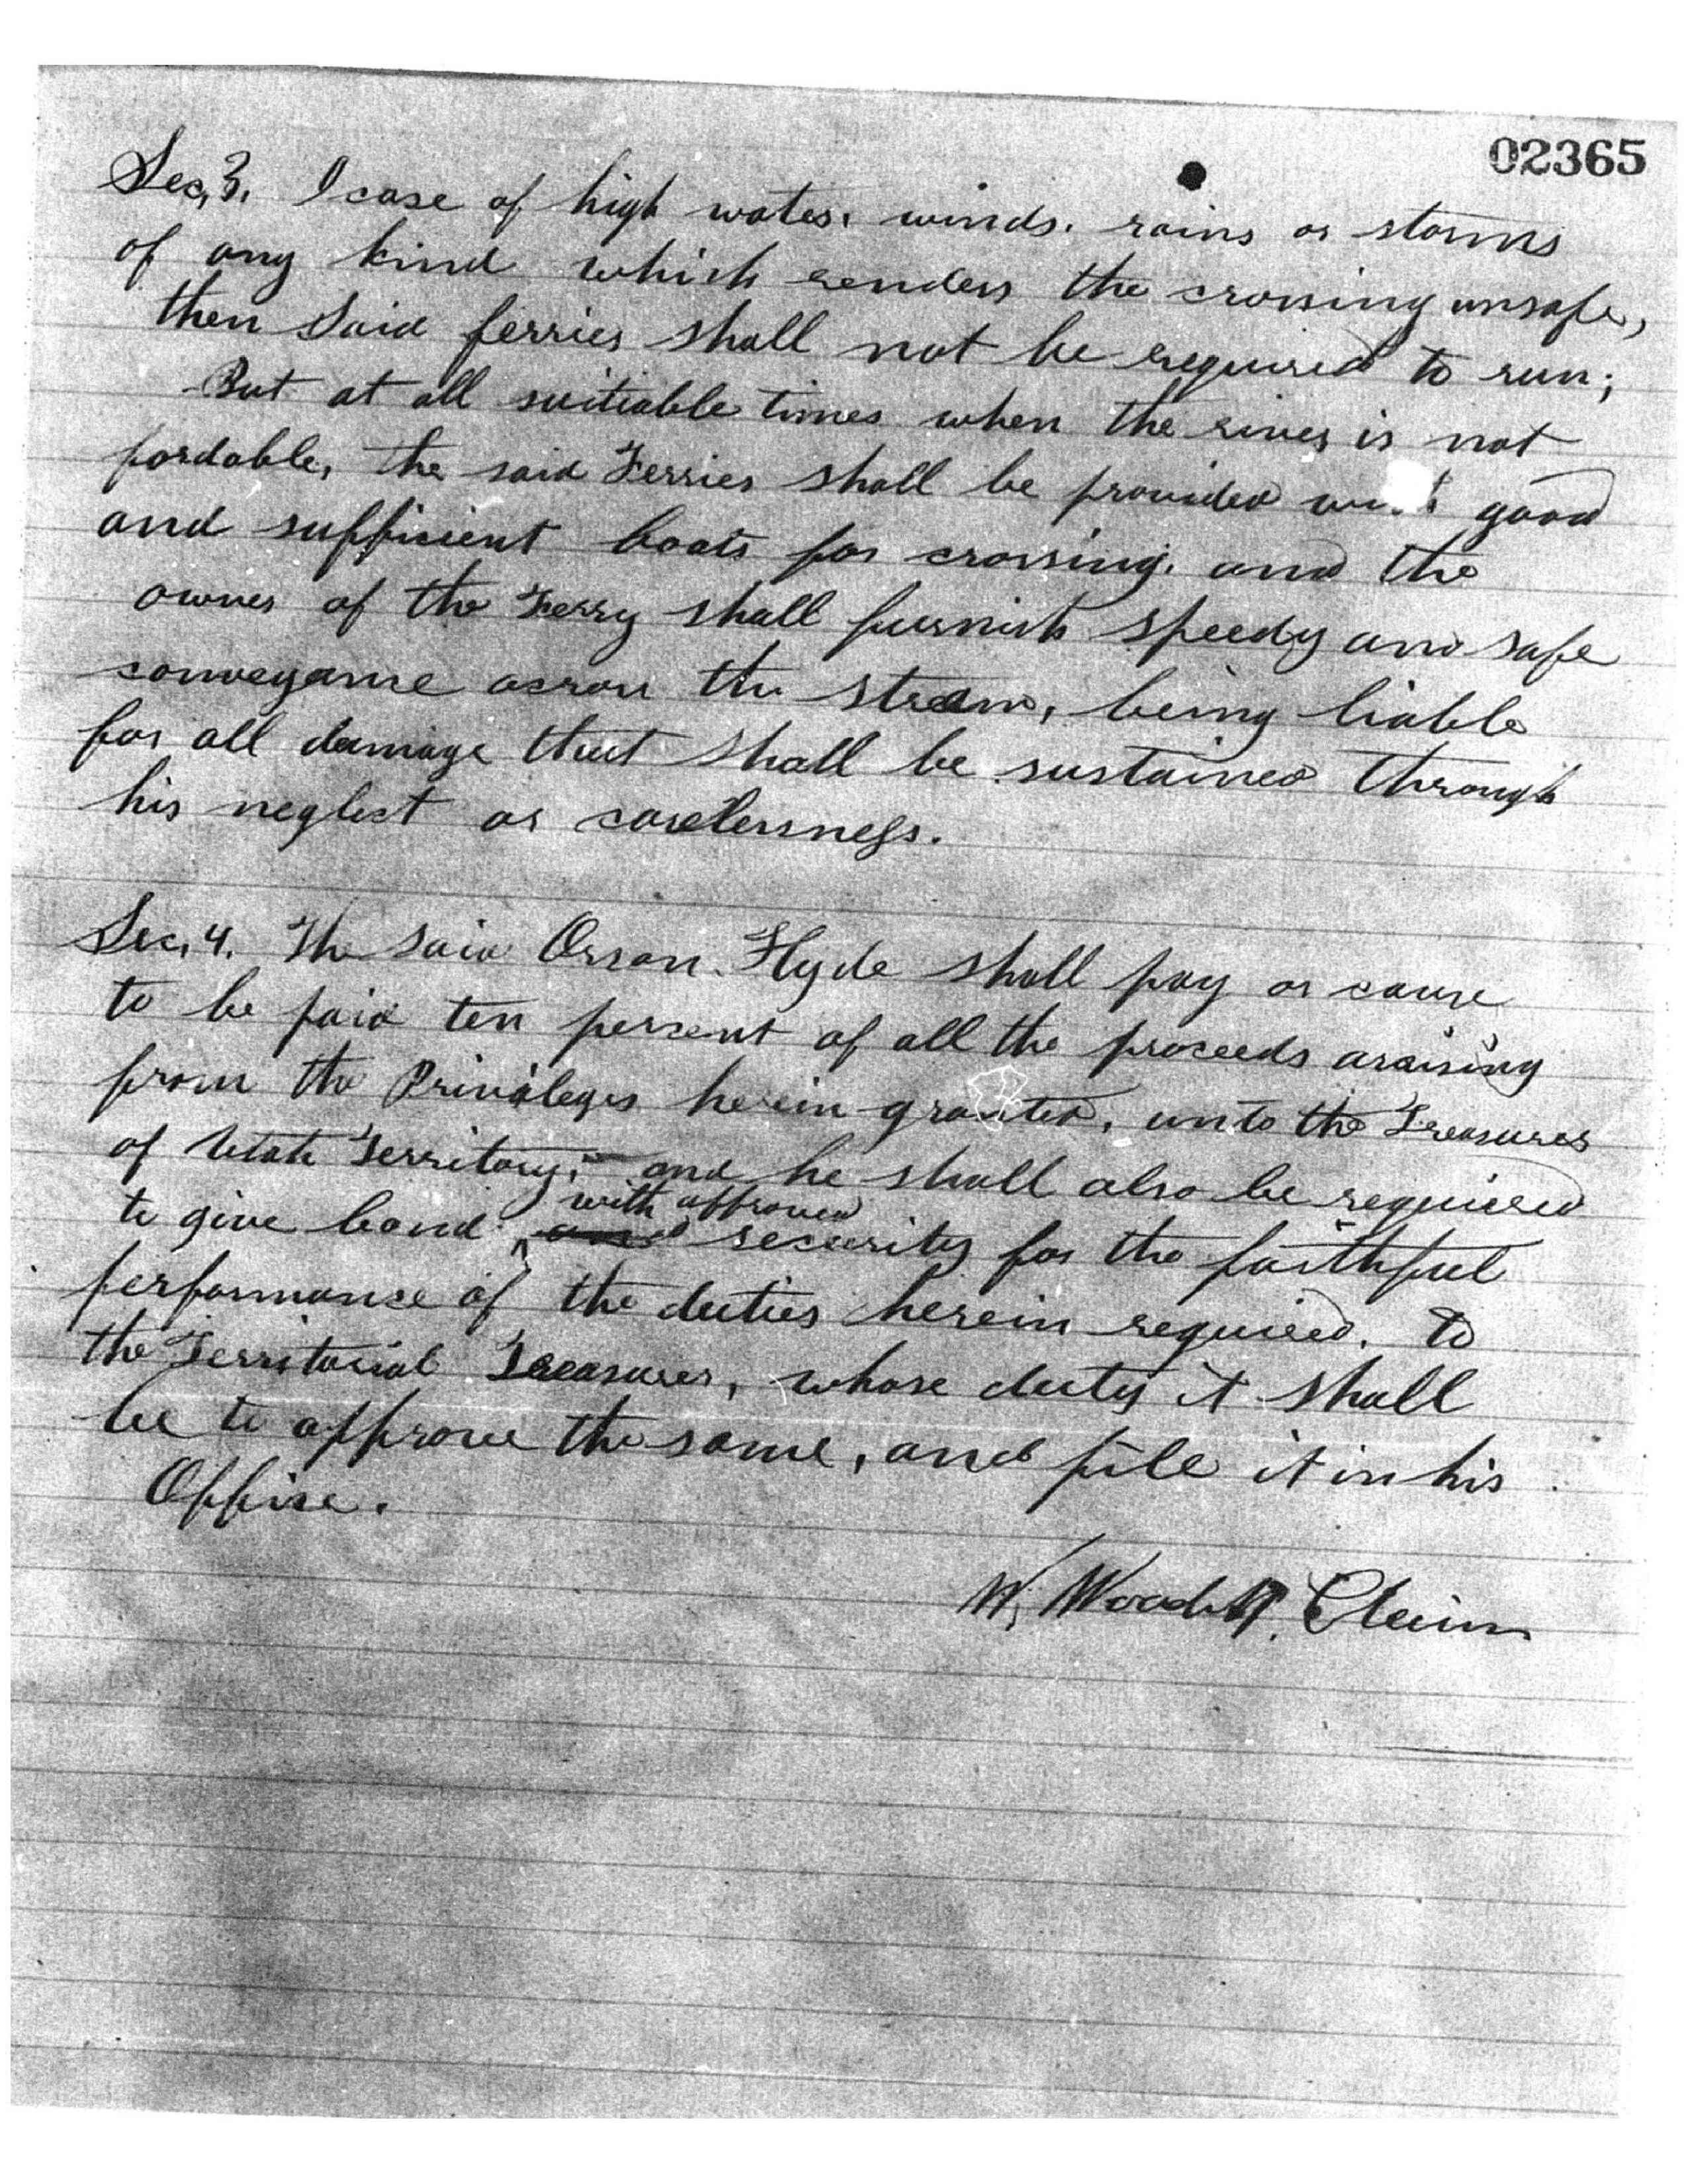 02365
Sec, 3. I case of high water. winds. rains or storms
of any kind which renders the crossing unsafe,
then said ferries shall not be required to run;
But at all suitiable times when the river is not
fordable, the said Ferries shall be provided good
and sufficient boats for crossing. and the
owner of the Ferry shall furnish speedy and safe
conveyance across the stream, being liable
for all damage that shall be sustained through
his neglect or carelessness.
Sec, 4. The said Orson Hyde shall pay or cause
to be paid ten percent of all the proceeds araising
from the Privileges herein granted, unto the Treasurer
of Utah Territory; and he shall also be required
with approved
to give bond and security for the faithful
performance of the duties herein required. to
the Territorial Treasurer, whose duty it shall
be to approve the same, and file it in his
Office.
W,